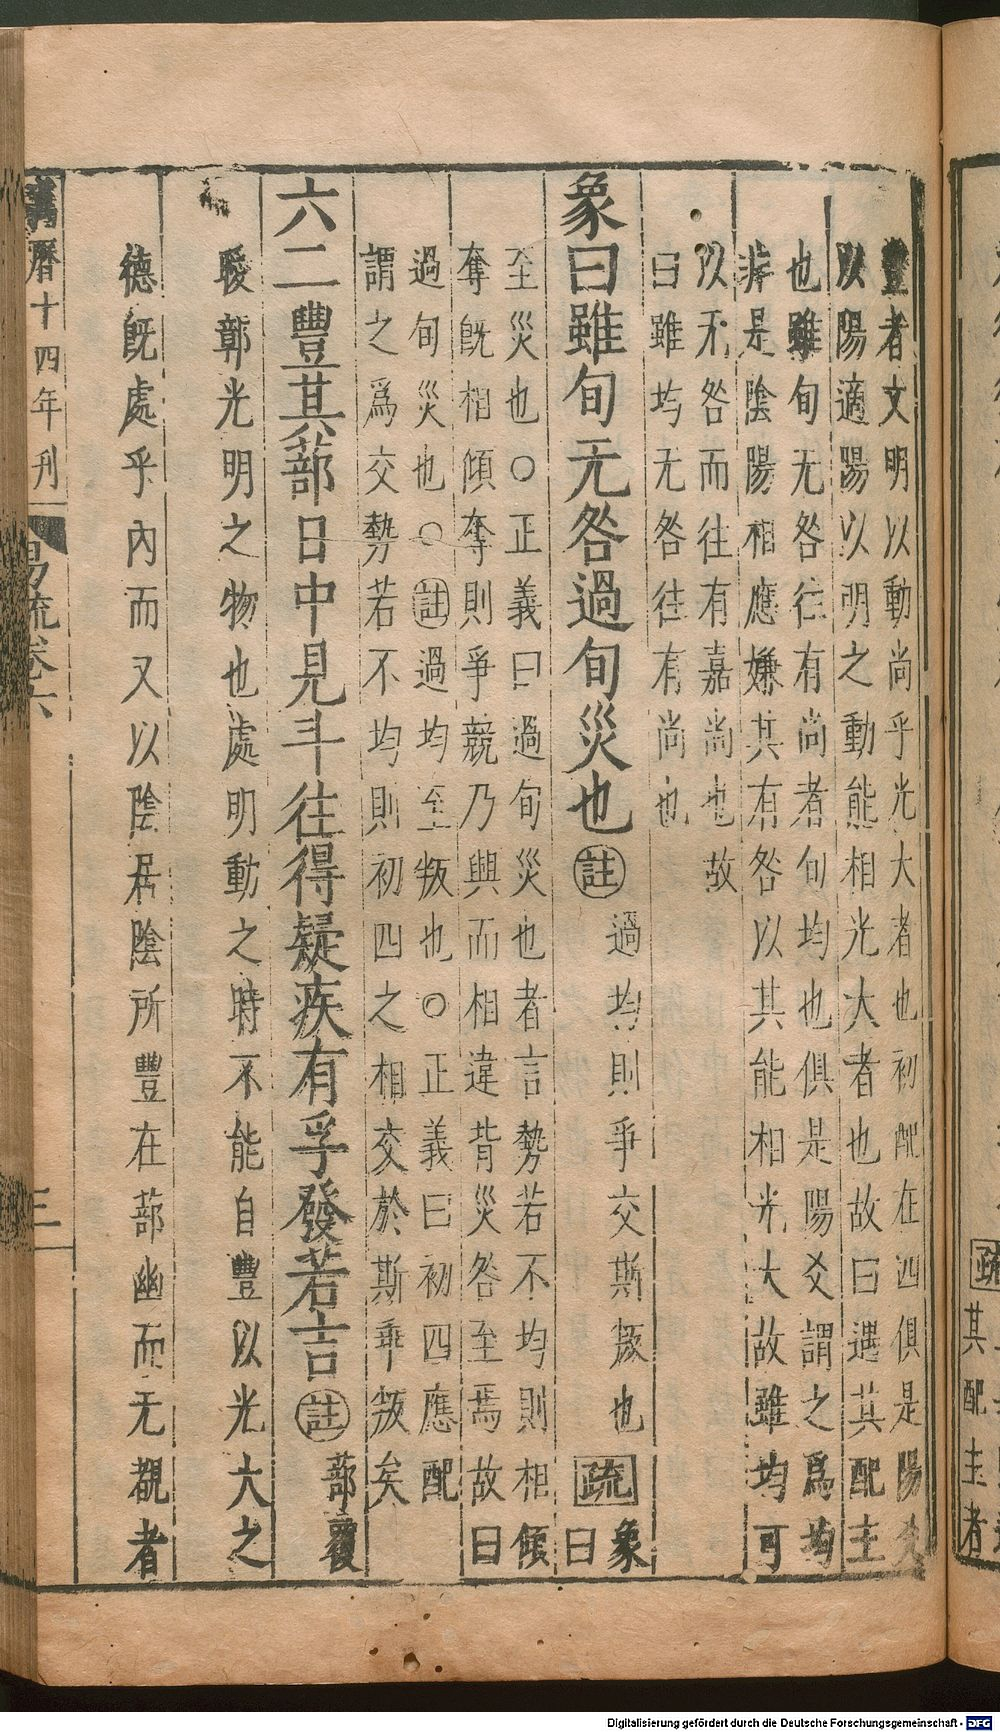 疏
其配主者
豐者文明以動尚乎光大者也初配在四俱是陽爻
以陽適陽以明之動能相光大者也故曰遇其配主
也雖旬无咎往有尚者旬均也俱是陽爻謂之爲均
非是陰陽相應嫌其有咎以其能相光大故雖均可
以无咎而往有嘉尚也故
曰雖均无咎往有尚也
象曰雖旬无咎過旬災也註過均則爭交斯叛也疏象曰
至災也○正義曰過旬災也者言勢若不均則相傾
奪既相傾奪則爭競乃興而相違背災咎至焉故曰
過旬災也○註過均至叛也○正義曰初四應配
謂之爲交勢若不均則初四之相交於斯乖叛矣
六二豐其蔀日中見斗往得疑疾有孚發若吉註蔀覆
曖鄣光明之物也處明動之時不能自豐以光大之
德既處乎內而又以陰居陰所豐在蔀幽而无覩者
萬曆十四年刊 易疏卷六 三
Digitalisierung gefördert durch die Deutsche Forschungsgemeinschaft - DFG